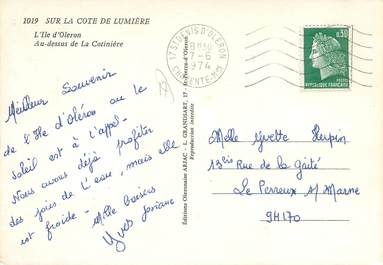 1019 SUR LA COTE DE LUMIÈRE
L'Ile d'Oleron
Au-dessus de La Cotinière
17 ST DENIS D'OLERON
1974
CHARENTE-MME
0,30
REPUBLIQUE FRANÇAISE
Meilleur Souvenir
de l'Ile d'Oléron ou le
soleil est à l'appel-
Nous avons déjà profiter
des joies de l'eau, mais elle
est froide - Mille Baisers
Yves Josiane
Editions Obternoises ARJAC - L. GRANDSART, 17 - St-Pierre-d'Oleron
Reproduction interdite
Melle Yvette
13bis Rue de la gaîté
Le Perreux s/ Marne
94170